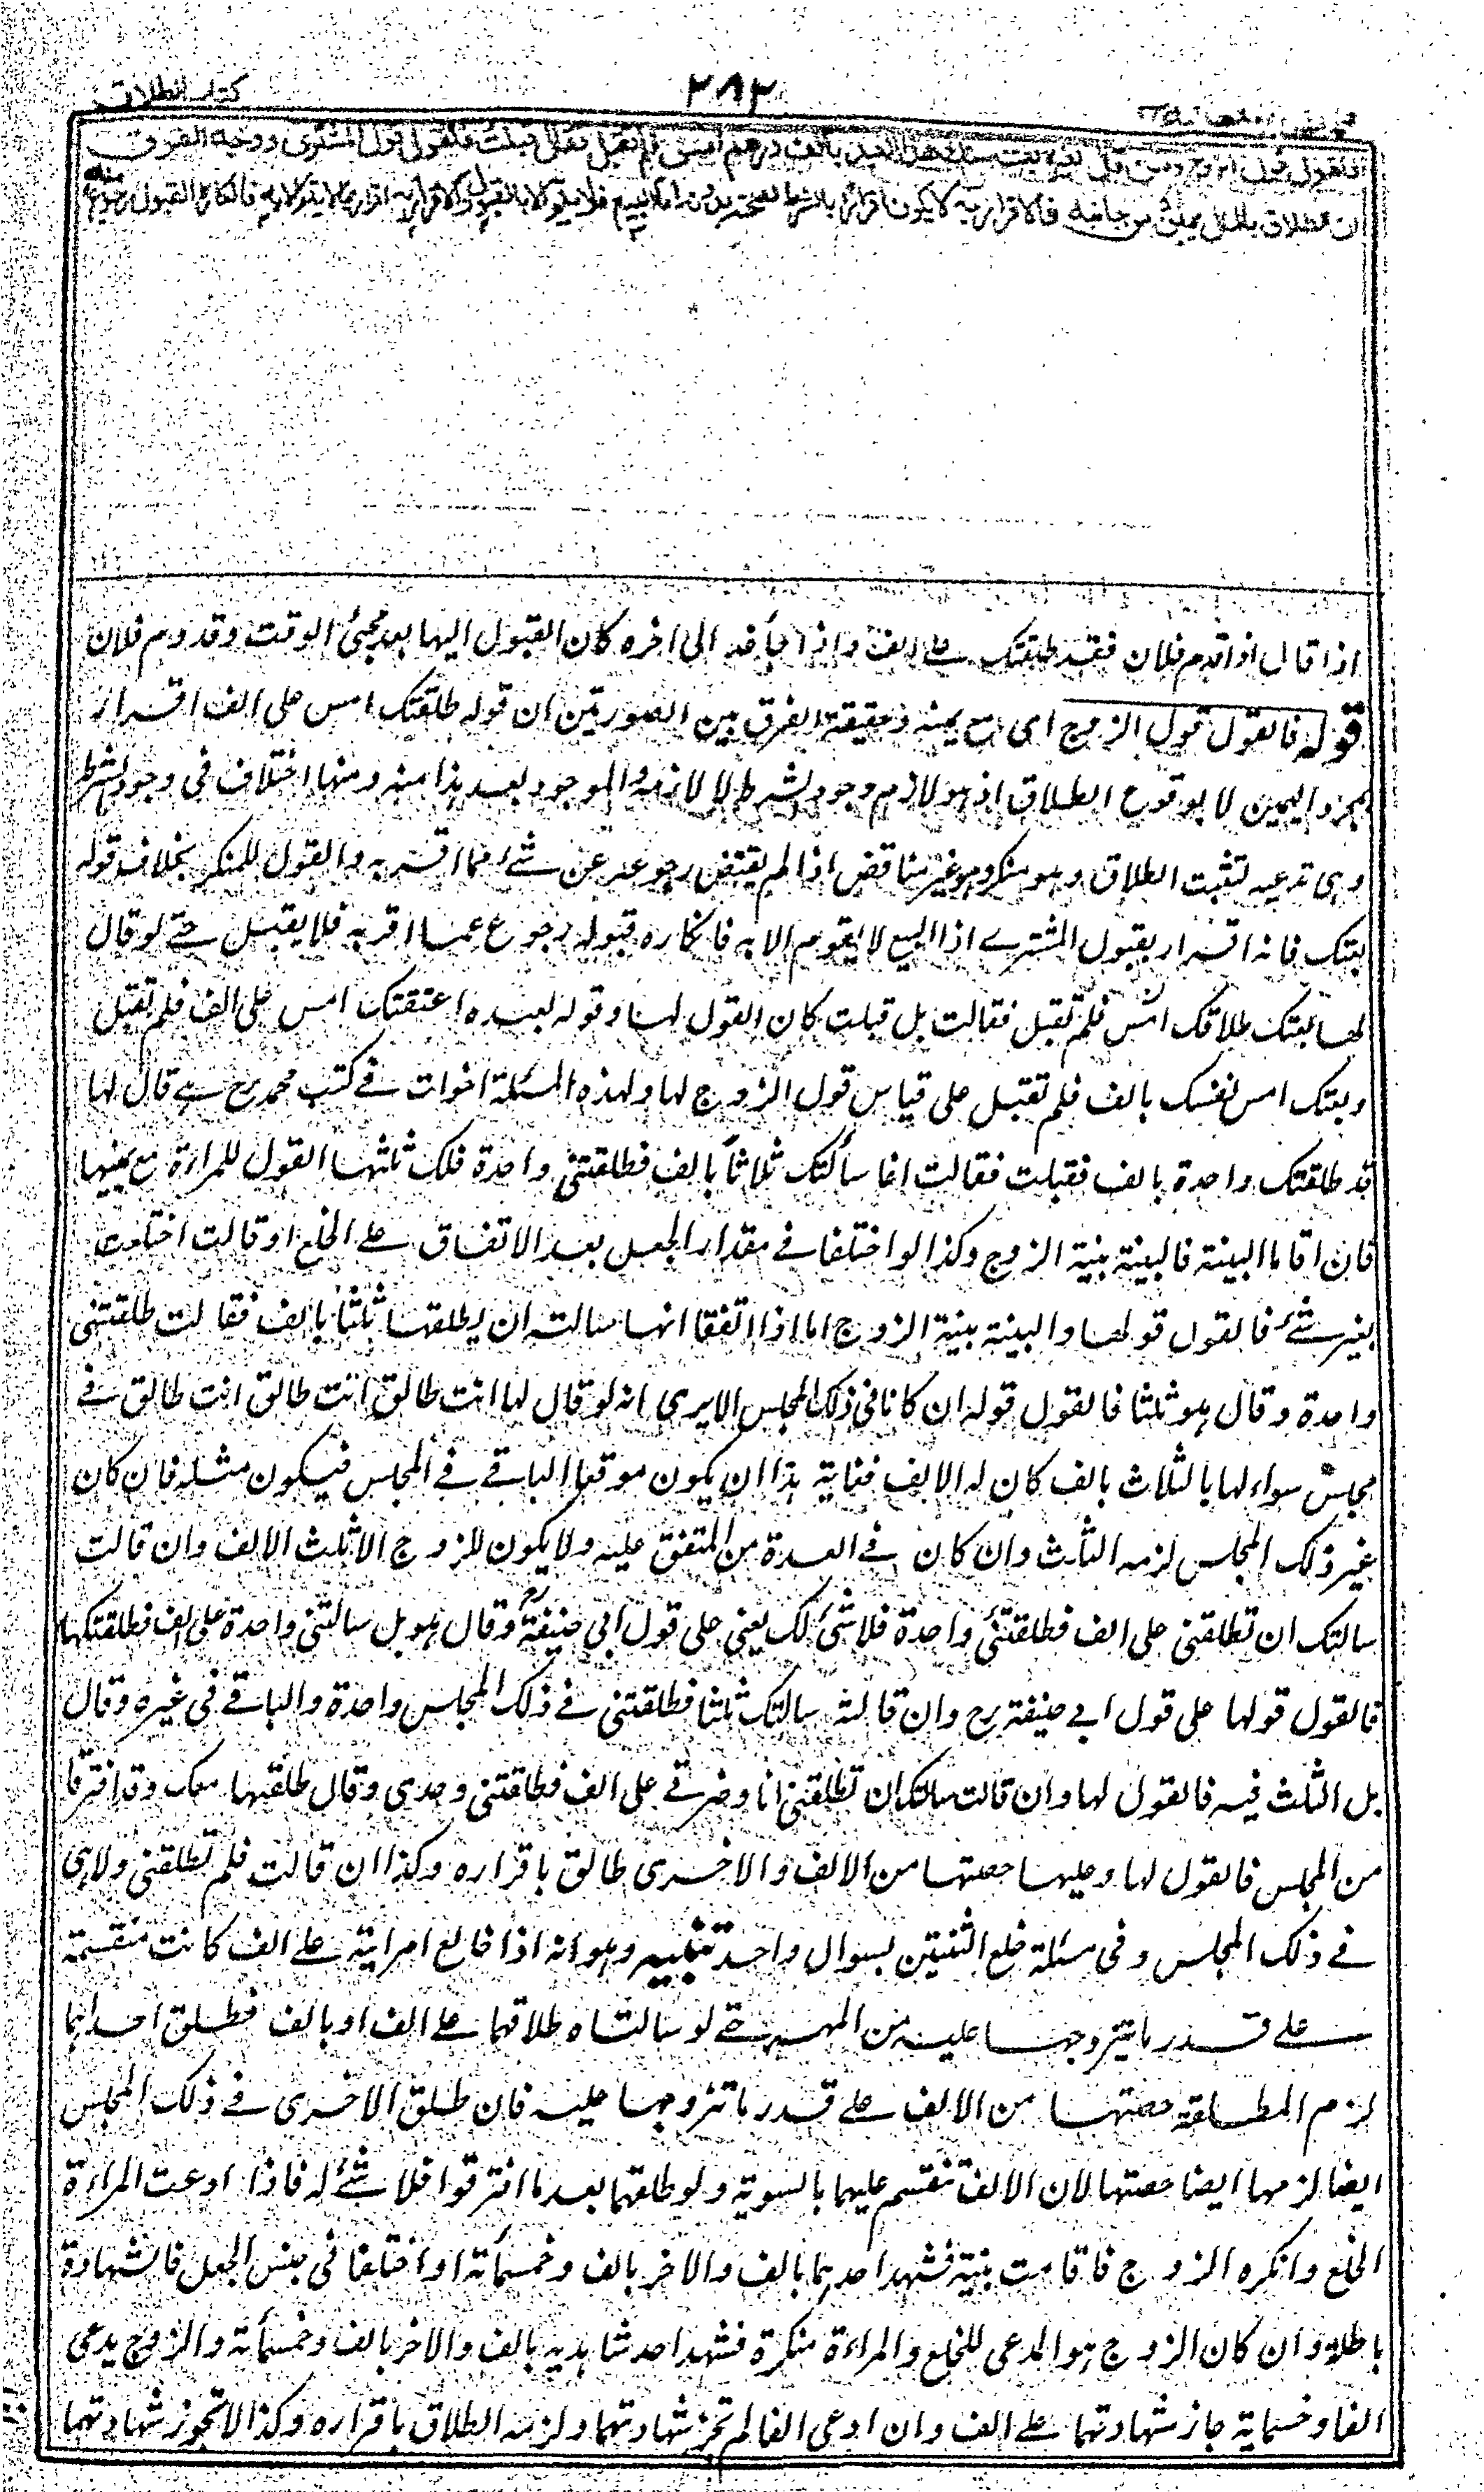 كتاب الطلاق
٢٨٢
فالقول قول الزوج ومن قال لغيره بعت منك هذا العبد بالف درهم امس فلم تقبل فقال قبلت فالقول قول المشترى ووجه الفرق
ان الطلاق بالمال يمين من جانبه فالاقرار به لا يكون اقرارا بالشرط لصحته بدونه اما البيع فلا يتم الا بالقبول والاقرار به اقرار بما لا يتم الا به فانكاره القبول رجوع منه
اذا قال اذا قدم فلان فقد طلقتك على الف واذا جاء غد الى اخره كان القبول اليها بعد مجيئ الوقت وقدوم فلان
قوله فالقول قول الزوج اى مع يمينه وحقيقة الفرق بين الصورتين ان قوله طلقتك امس على الف اقرار
بمجرد اليمين لا بوقوع الطلاق اذ هو لازم وجود الشرط لا لازمه والموجود بعد هذا منه ومنها اختلاف فى وجود الشرط
وهى تدعيه لتثبت الطلاق وهو منكر وهو غير مناقض اذا لم يقتض رجوعه عن شئ مما اقر به والقول للمنكر بخلاف قوله
بعتك فانه اقرار بقبول المشترے اذا البيع لا يقوم الا به فانكاره قبوله رجوع عما اقر به فلا يقبل حتے لو قال
لها بعتك طلاقك امس فلم تقبل فقالت بل قبلت كان القول لها وقوله لعبده اعتقتك امس على الف فلم تقبل
وبعتك امس نفسك بالف فلم تقبل على قياس قول الزوج لها ولهذه المسئلة اخوات فے كتب محمد رح هے قال لها
قد طلقتك واحدة بالف فقبلت فقالت انما سألتك ثلاثاً بالف فطلقتنى واحدة فلك ثلثها القول للمراءة مع يمينها
فان اقاما البينة فالبينة بينة الزوج وكذا لو اختلفا فے مقدار الجعل بعد الاتفاق علے الخلع او قالت اختلعت
بغير شئ فالقول قولها والبينة بينة الزوج اما اذا اتفقا انها سالته ان يطلقها ثلثا بالف فقالت طلقتنى
واحدة وقال هو ثلثا فالقول قوله ان كانا فى ذلك المجلس الا يرى انه لو قال لها انت طالق انت طالق انت طالق فے
مجلس سواء لها بالثلاث بالف كان له الالف فغاية هذا ان يكون موقعا الباقے فے المجلس فيكون مثله فان كان
غير ذلك المجلس لزمه الثلث وان كان فے العدة من المتفق عليه ولا يكون للزوج الا ثلث الالف وان قالت
سالتك ان تطلقنى على الف فطلقتنى واحدة فلا شئ لك يعنى على قول ابى حنيفة رح وقال هو بل سالتنى واحدة على الف فطلقتكها
فالقول قولها على قول ابے حنيفة رح وان قالت سالتك ثلثا فطلقتنى فے ذلك المجلس واحدة والباقے فى غيره وقال
بل الثلث فيه فالقول لها وان قالت سالتك ان تطلقنى انا وضرتے على الف فطلقتنى وحدى وقال طلقتها معك وقد افترقا
من المجلس فالقول لها وعليها حصتها من الالف والاخرى طالق باقراره وكذا ان قالت فلم تطلقنى ولا هى
فے ذلك المجلس وفى مسئلة خلع الثنتين بسوال واحد تنبيه وهو انه اذا خالع امراتيه على الف كانت منقسمة
علے قدر ما تزوجها عليه من المهر حتے لو سالتاه طلاقهما علے الف او بالف فطلق احداهما
لزم المطلقة حصتها من الالف علے قدر ما تزوجها عليه فان طلق الاخرى فے ذلك المجلس
ايضا لزمها ايضا حصتها لان الالف تنقسم عليهما بالسوية ولو طلقهما بعد ما افترقوا فلا شئ له فاذا ادعت المراءة
الخلع وانكره الزوج فاقامت بينة فشهد احدهما بالف والاخر بالف وخمسمأئة او اختلفا فى جنس الجعل فالشهادة
باطلة وان كان الزوج هو المدعى للخلع والمراءة منكرة فشهد احد شاهديه بالف والاخر بالف وخمسمأئة والزوج يدعى
الفا وخمسماية جاز شهادتهما علے الف وان ادعى الفا لم تجز شهادتهما ولزمه الطلاق باقراره وكذا لا تجوز شهادتهما